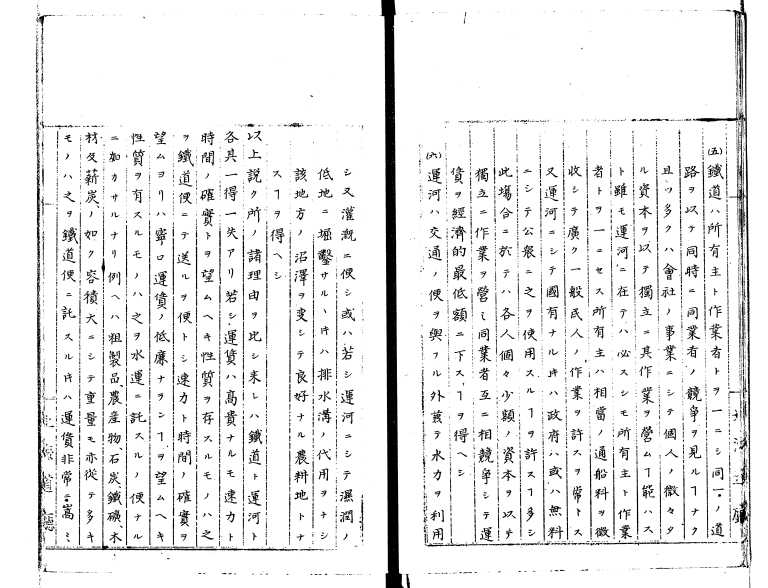 (五)鐵道ハ所有主ト作業者トヲ一ニシ同一ノ道
路ヲ以テ同時ニ同業者ノ競爭ヲ見ルヿナク
且ツ多クハ會社ノ事業ニシテ個人ノ微々タ
ル資本ヲ以テ獨立ニ其作業ヲ營ムヿ能ハス
ト雖モ運河ニ在テハ必スシモ所有主ト作業
者トヲ一ニセス所有主ハ相當ノ通船料ヲ徴
收シテ廣ク一般民人ノ作業ヲ許スヲ常トス
又運河ニシテ國有ナルトキハ政府ハ或ハ無料
ニシテ公衆ニ之ヲ使用スルヿヲ許スヿ多シ
此塲合ニ於テハ各人個々少額ノ資本ヲ以テ
獨立ニ作業ヲ營ミ同業者互ニ相競爭シテ運
賃ヲ經濟的最低額ニ下スヿヲ得ヘシ
(六)運河ハ交通ノ便ヲ與フル外兼テ水力ヲ利用
シ又灌漑ニ便シ或ハ若シ運河ニシテ濕潤ノ
低地ニ堀鑿サルヽトキハ排水溝ノ代用ヲナシ
該地方ノ沼澤ヲ変シテ良好ナル農耕地トナ
スヿヲ得ヘシ
以上説ク所ノ諸理由ヲ比シ来レハ鐵道ト運河ト
各其一得一失アリ若シ運賃ハ高貴ナルモ速力ト
時間ノ確實トヲ望ムヘキ性質ヲ存スルモノハ之
ヲ鐵道便ニテ送ルヲ便トシ速力ト時間ノ確實ヲ
望ムヨリハ寧ロ運賃ノ低廉ナランヿヲ望ムヘキ
性質ヲ有スルモノハ之ヲ水運ニ託スルノ便ナル
ニ如カサルナリ例ヘハ粗製品、農産物石炭、鐵礦、木
材及薪炭ノ如ク容積大ニシテ重量モ亦從テ多キ
モノハ之ヲ鐵道便ニ託スルトキハ運賃非常ニ嵩ミ